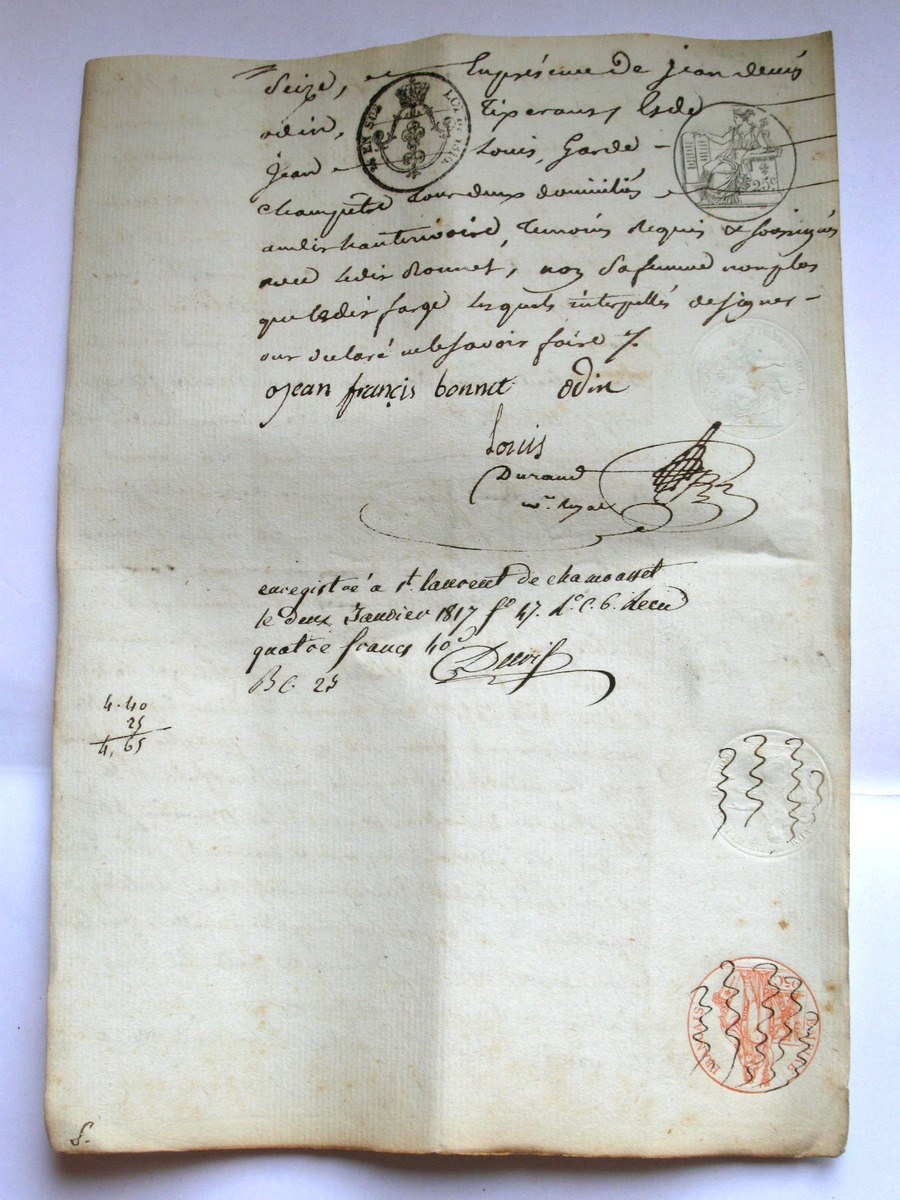 Seize, en présence de jean denis
odin, Tisserant, & de
jean Louis, Garde
champêtre Tous deux domiciliés
audit hauterivoire, Temoins Requis & soussignés
avec ledit Bonnet, non Sa femme non plus
que ledit farge lesquels interpellés de signer
ont declaré ne le savoir faire /.
EN SUS
LOI
25c
jean françis bonnet odin
Louis
Durand
enregistré a st. laurent de chamousset
le deux Janvier 1817 fo 47. Ro C. 6. Recu
quatre francs 40
BC. 25
4.40
25
4,65